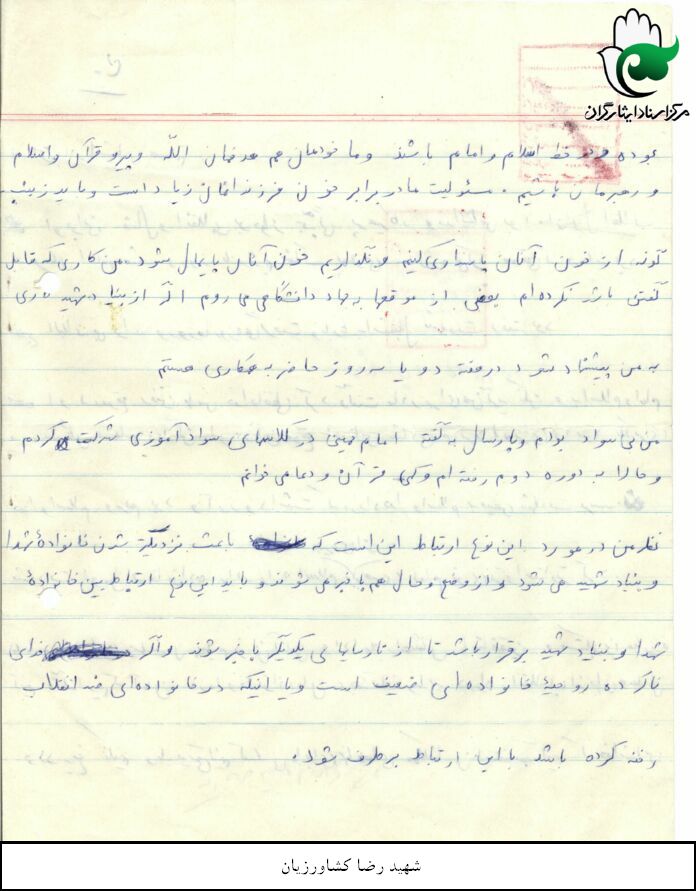 مرکز اسناد ایثارگران
بوده و در خط اسلام و امام باشند و ما خودمان هم هدفمان الله و پیرو قرآن و اسلام
و رهبرمان باشیم. مسئولیت ما در برابر خون فرزندانمان زیاد است و باید زینب
گونه از خون آنان پاسداری کنیم و نگذاریم خون آنان پایمال شود. من کاری که قابل
گفتن باشد نکرده‌ام بعضی از موقعها به جهاد دانشگاهی می روم اگر از بنیاد شهید کاری
به من پیشنهاد شود در هفته دو یا سه روز حاضر به همکاری هستم
من بی سواد بودم و پارسال به گفته امام خمینی در کلاسهای سوادآموزی شرکت کردم
و حالا به دوره دوم رفته ام و کمی قرآن و دعا می خوانم
نظر من در مورد این نوع ارتباط این است که باعث نزدیکتر شدن خانوادهٔ شهدا
و بنیاد شهید می شود و از وضع و حال هم با خبر می شوند و باید این نوع ارتباط بین خانوادهٔ
شهدا و بنیاد شهید برقرار باشد تا از نارسایها ی یکدیگر باخبر شوند و اگر خدای
ناکرده روحیهٔ خانواده ای ضعیف است و یا اینکه در خانواده‌ای ضد انقلاب
رخنه کرده باشد با این ارتباط برطرف شود.
شهید رضا کشاورزیان